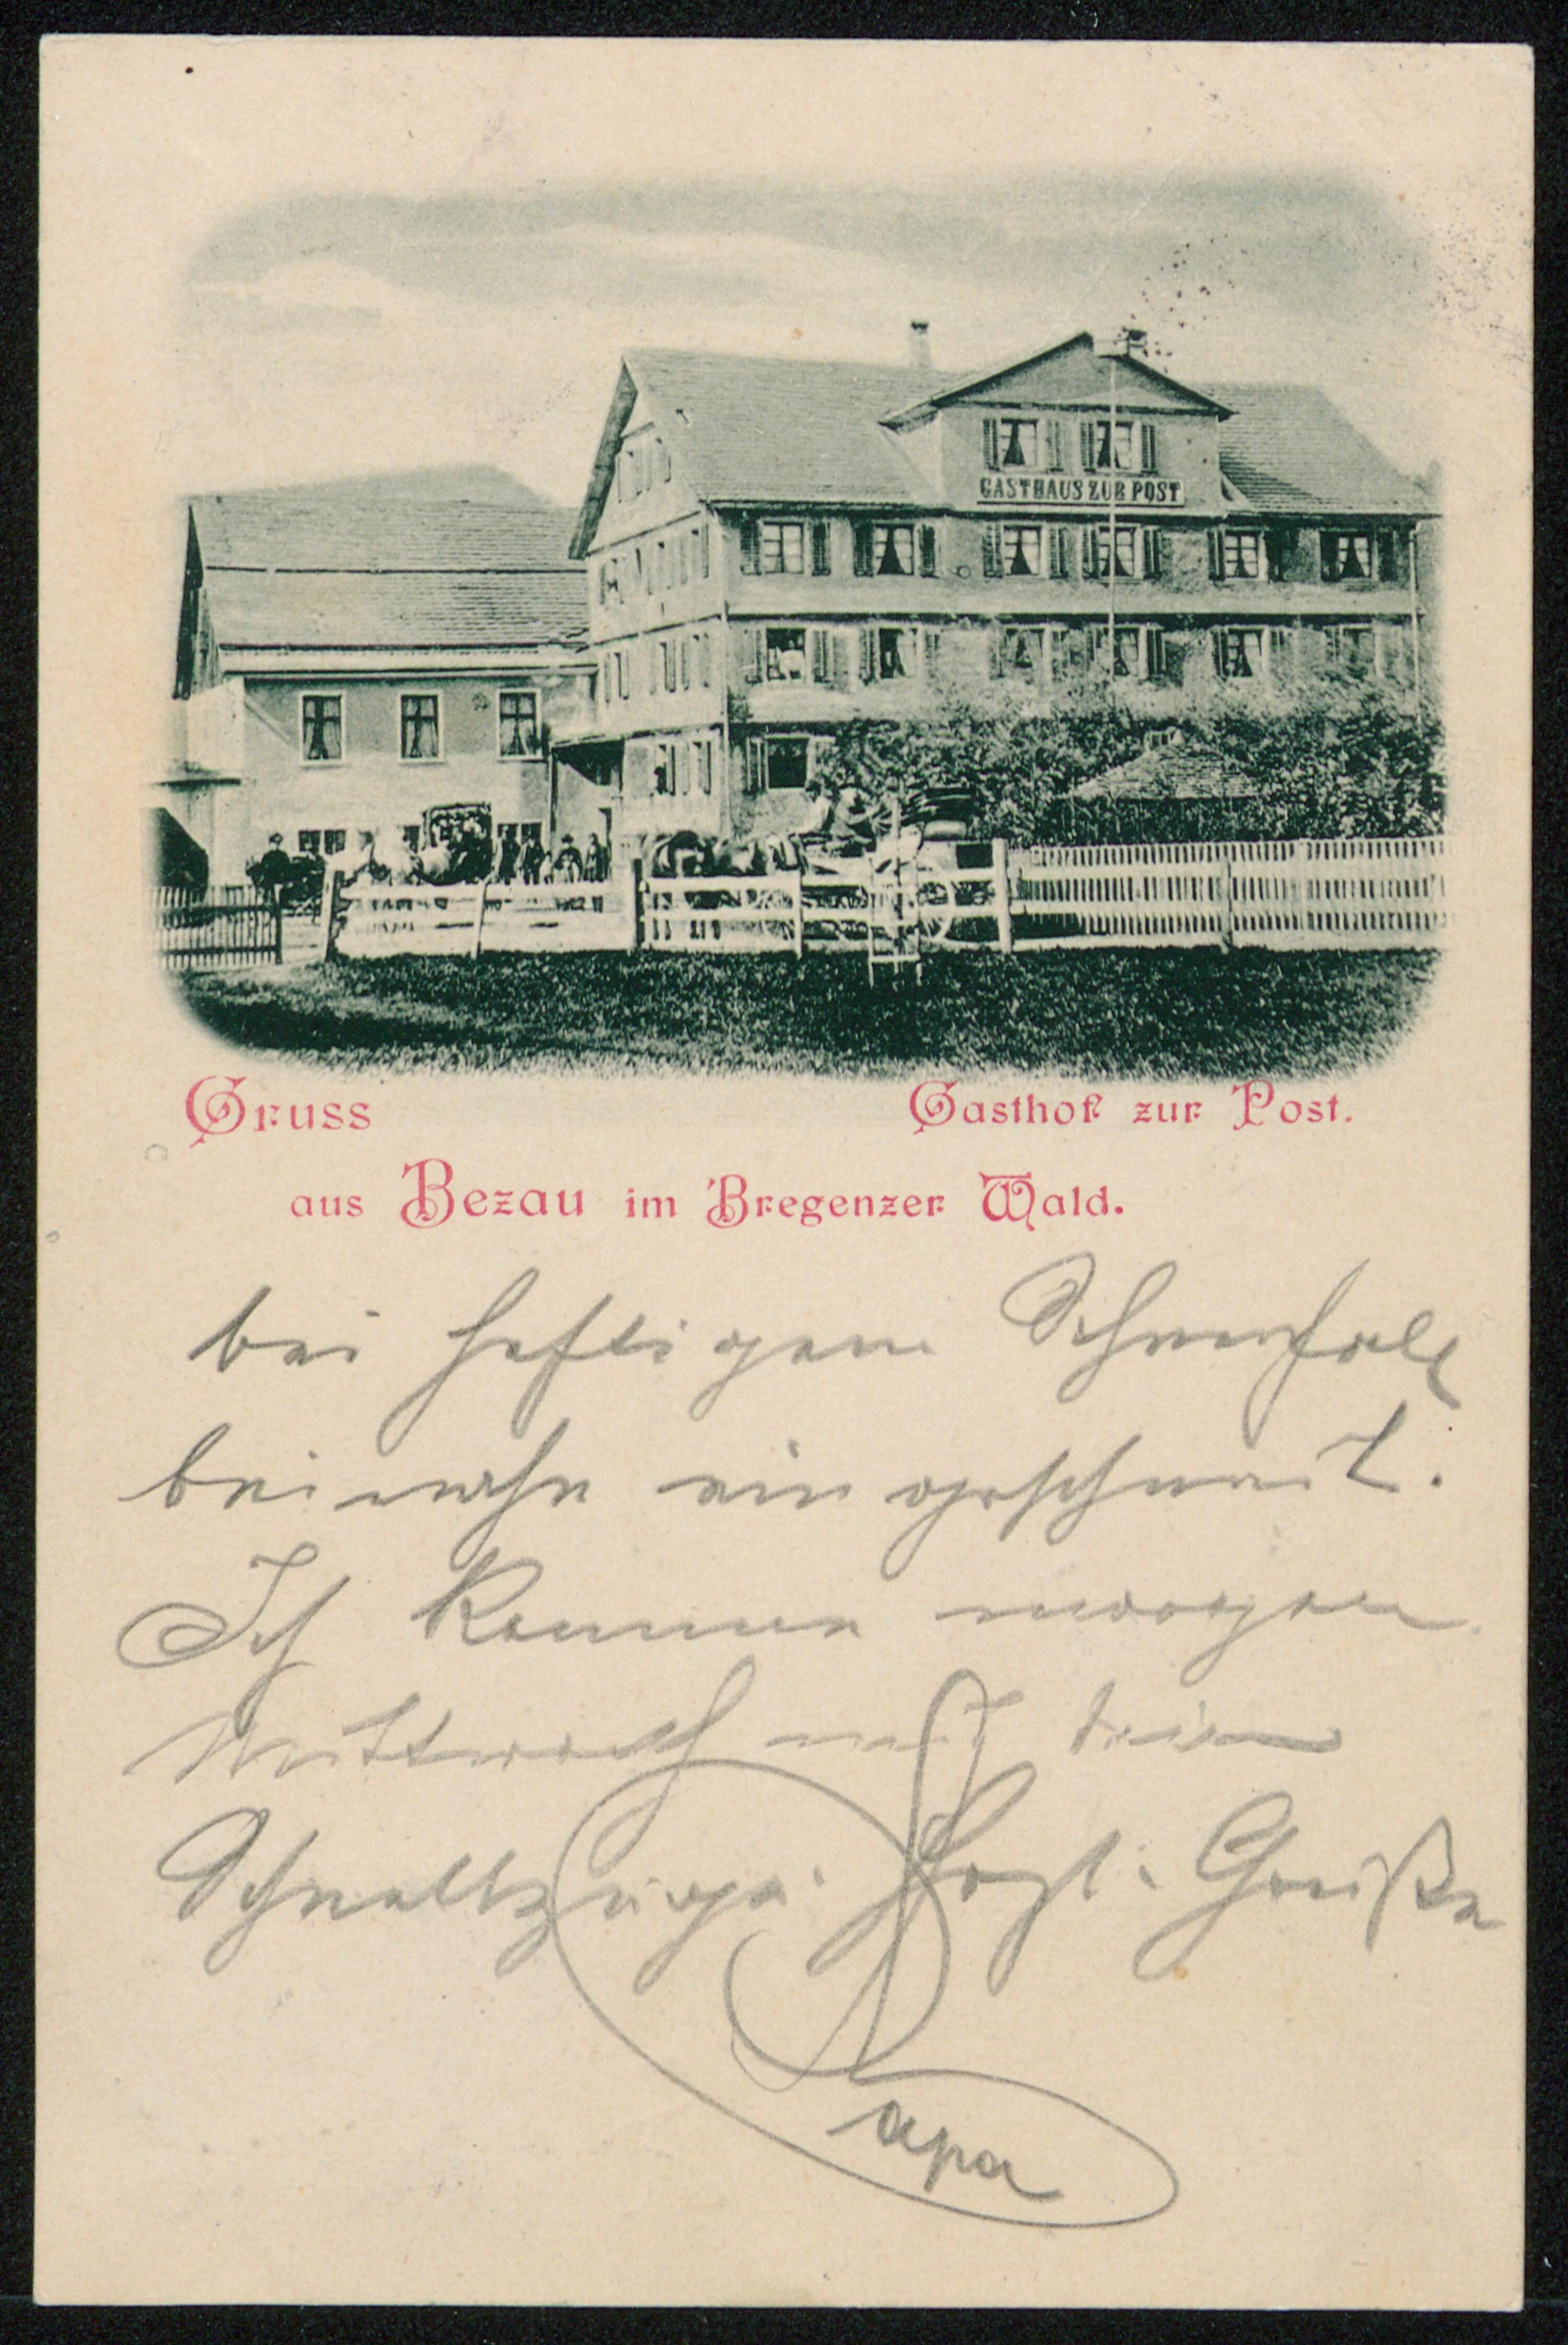 GASTHAUS ZUR POST
Gruss
Gasthof zur Post.
aus Bezau im Bregenzer Wald.
bei heftigem Schneefall
beinahe eingeschneit.
Ich komme morgen
Mittwoch mit dem
Schnellzuge. Herzl. Grüße
Papa